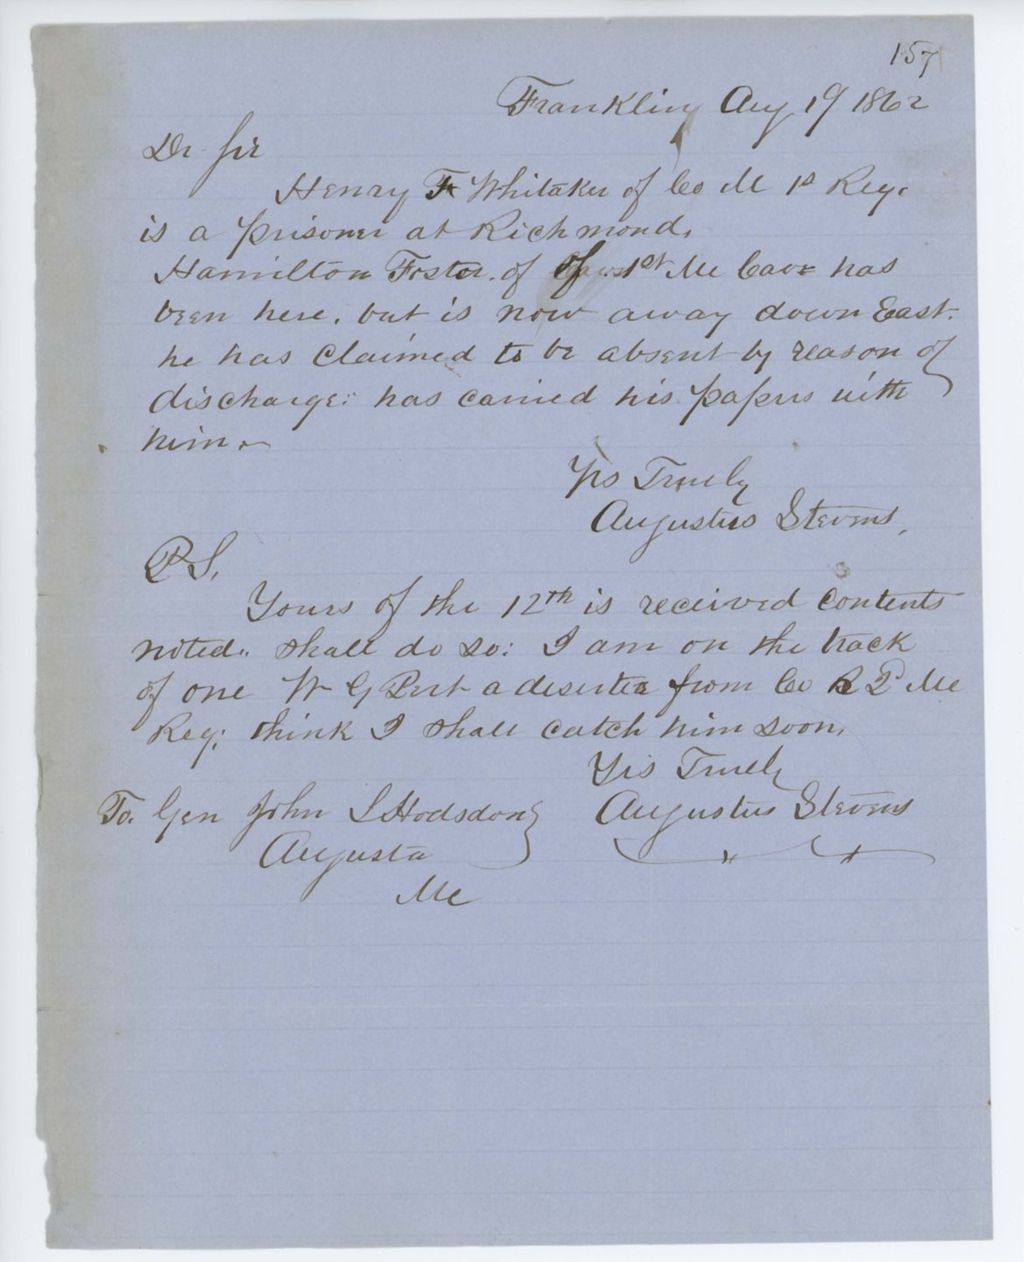 157
Franklin Aug 19 1862
Dr Sir
Henry F Whitaker of Co M 1st Reg.
is a prisoner at Richmond.
Hamilton Foster. of 1st Me Cav has
been here. but is now away down East.
he has claimed to be absent by reason of
discharge: has carried his papers with
him.
Yrs Truely
Augustus Stevens.
P S.
Yours of the 12th is received contents
noted. shall do so: I am on the track
of one W G a deserter from Co Me
Reg; think I shall catch him soon.
Yrs Truely
Augustus Stevens
To. Gen John L Hodsdon
Augusta
Me